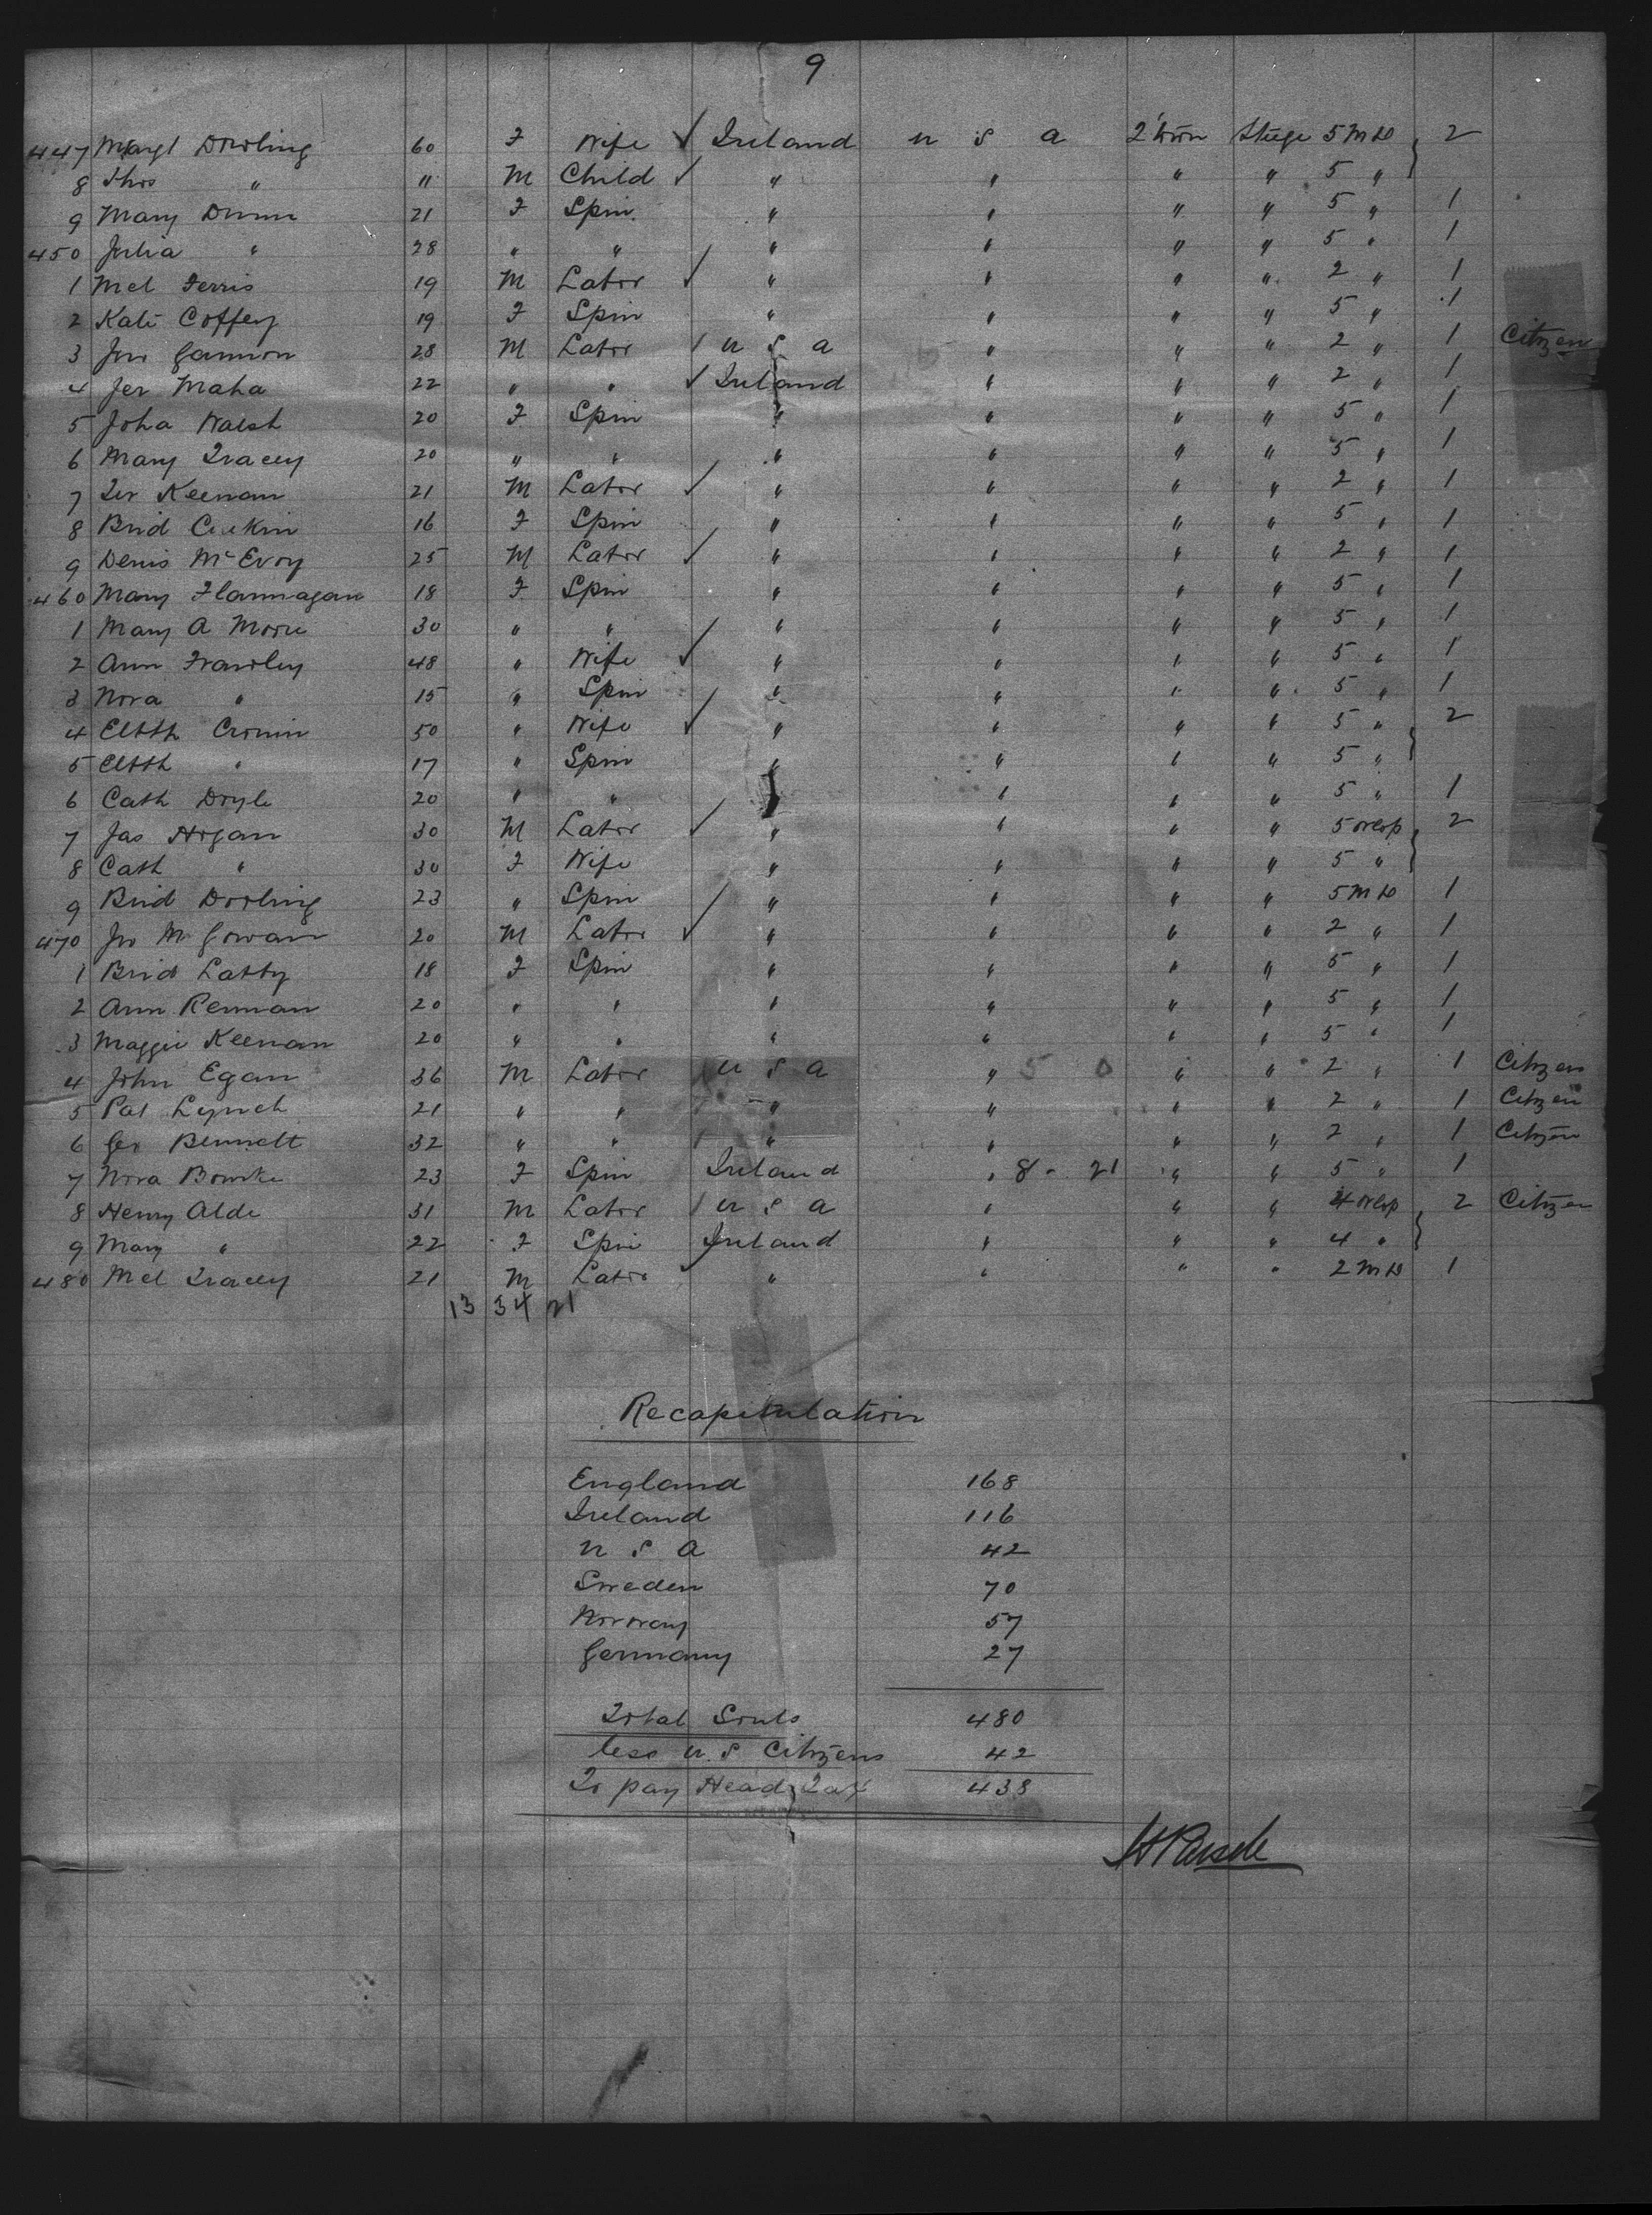 9
447 Margt Dowling 60 F Wife ✓ Ireland U S A 2 Town Stege 5 M D } 2
8 Thos " 11 M Child ✓ " " " " 5 "
9 Mary Dunn 21 F Spin " " " " 5 " 1
450 Julia " 28 " " " " " " 5 " 1
1 Mcl Ferris 19 M Labor ✓ " " " " 2 " 1
2 Kate Coffey 19 F Spin " " " " 5 " 1
3 Jno Gannon 28 M Labor / U S A " " " 2 " 1 Citizen
4 Jer Maha 22 " " ✓ Ireland " " " 2 " 1
5 Joha Walsh 20 F Spin " " " " 5 " 1
6 Mary Tracey 20 " " " " " " 5 " 1
7 Ter Keenan 21 M Labor ✓ " " " " 2 " 1
8 Brid 16 F Spin " " " " 5 " 1
9 Denis McEvoy 25 M Labor ✓ " " " " 2 " 1
460 Mary Flannagan 18 F Spin " " " " 5 " 1
1 Mary A Moore 30 " " " " " " 5 " 1
2 Ann Frawley 48 " Wife ✓ " " " " 5 " 1
3 Nora " 15 " Spin " " " " 5 " 1
4 Elbth Cronin 50 " Wife ✓ " " " " 5 " } 2
5 Elbth " 17 " Spin " " " " 5 "
6 Cath Doyle 20 " " " " " " 5 " 1
7 Jas Hogan 30 M Labor ✓ " " " " 5 } 2
8 Cath " 30 F Wife " " " " 5 "
9 Brid Dooling 23 " Spin " " " " 5 M D 1
470 Jno McGowan 20 M Labor ✓ " " " " 2 " 1
1 Brid Latty 18 F Spin " " " " 5 " 1
2 Ann Rennan 20 " " " " " " 5 " 1
3 Maggie Keenan 20 " " " " " " 5 " 1
4 John Egan 36 M Labor / U S A " 5 0 " " 2 " 1 Citizen
5 Pat Lynch 21 " " / " " " " 2 " 1 Citizen
6 Geo Bennett 32 " " / " " " " 2 " 1 Citizen
7 Nora Bourke 23 F Spin Ireland " 8 - 21 " " 5 " 1
8 Henry Alde 31 M Labor / U S A " " " 4 } 2 Citizen
9 Mary " 22 F Spin Ireland " " " 4 "
480 Mcl Tracey 21 M Labor " " " " 2 M D 1
13 34 21
Recapitulation
England 168
Ireland 116
U S A 42
Sweden 70
Norway 57
Germany 27
Total Souls 480
less U.S Citizens 42
To pay Head Tax 438